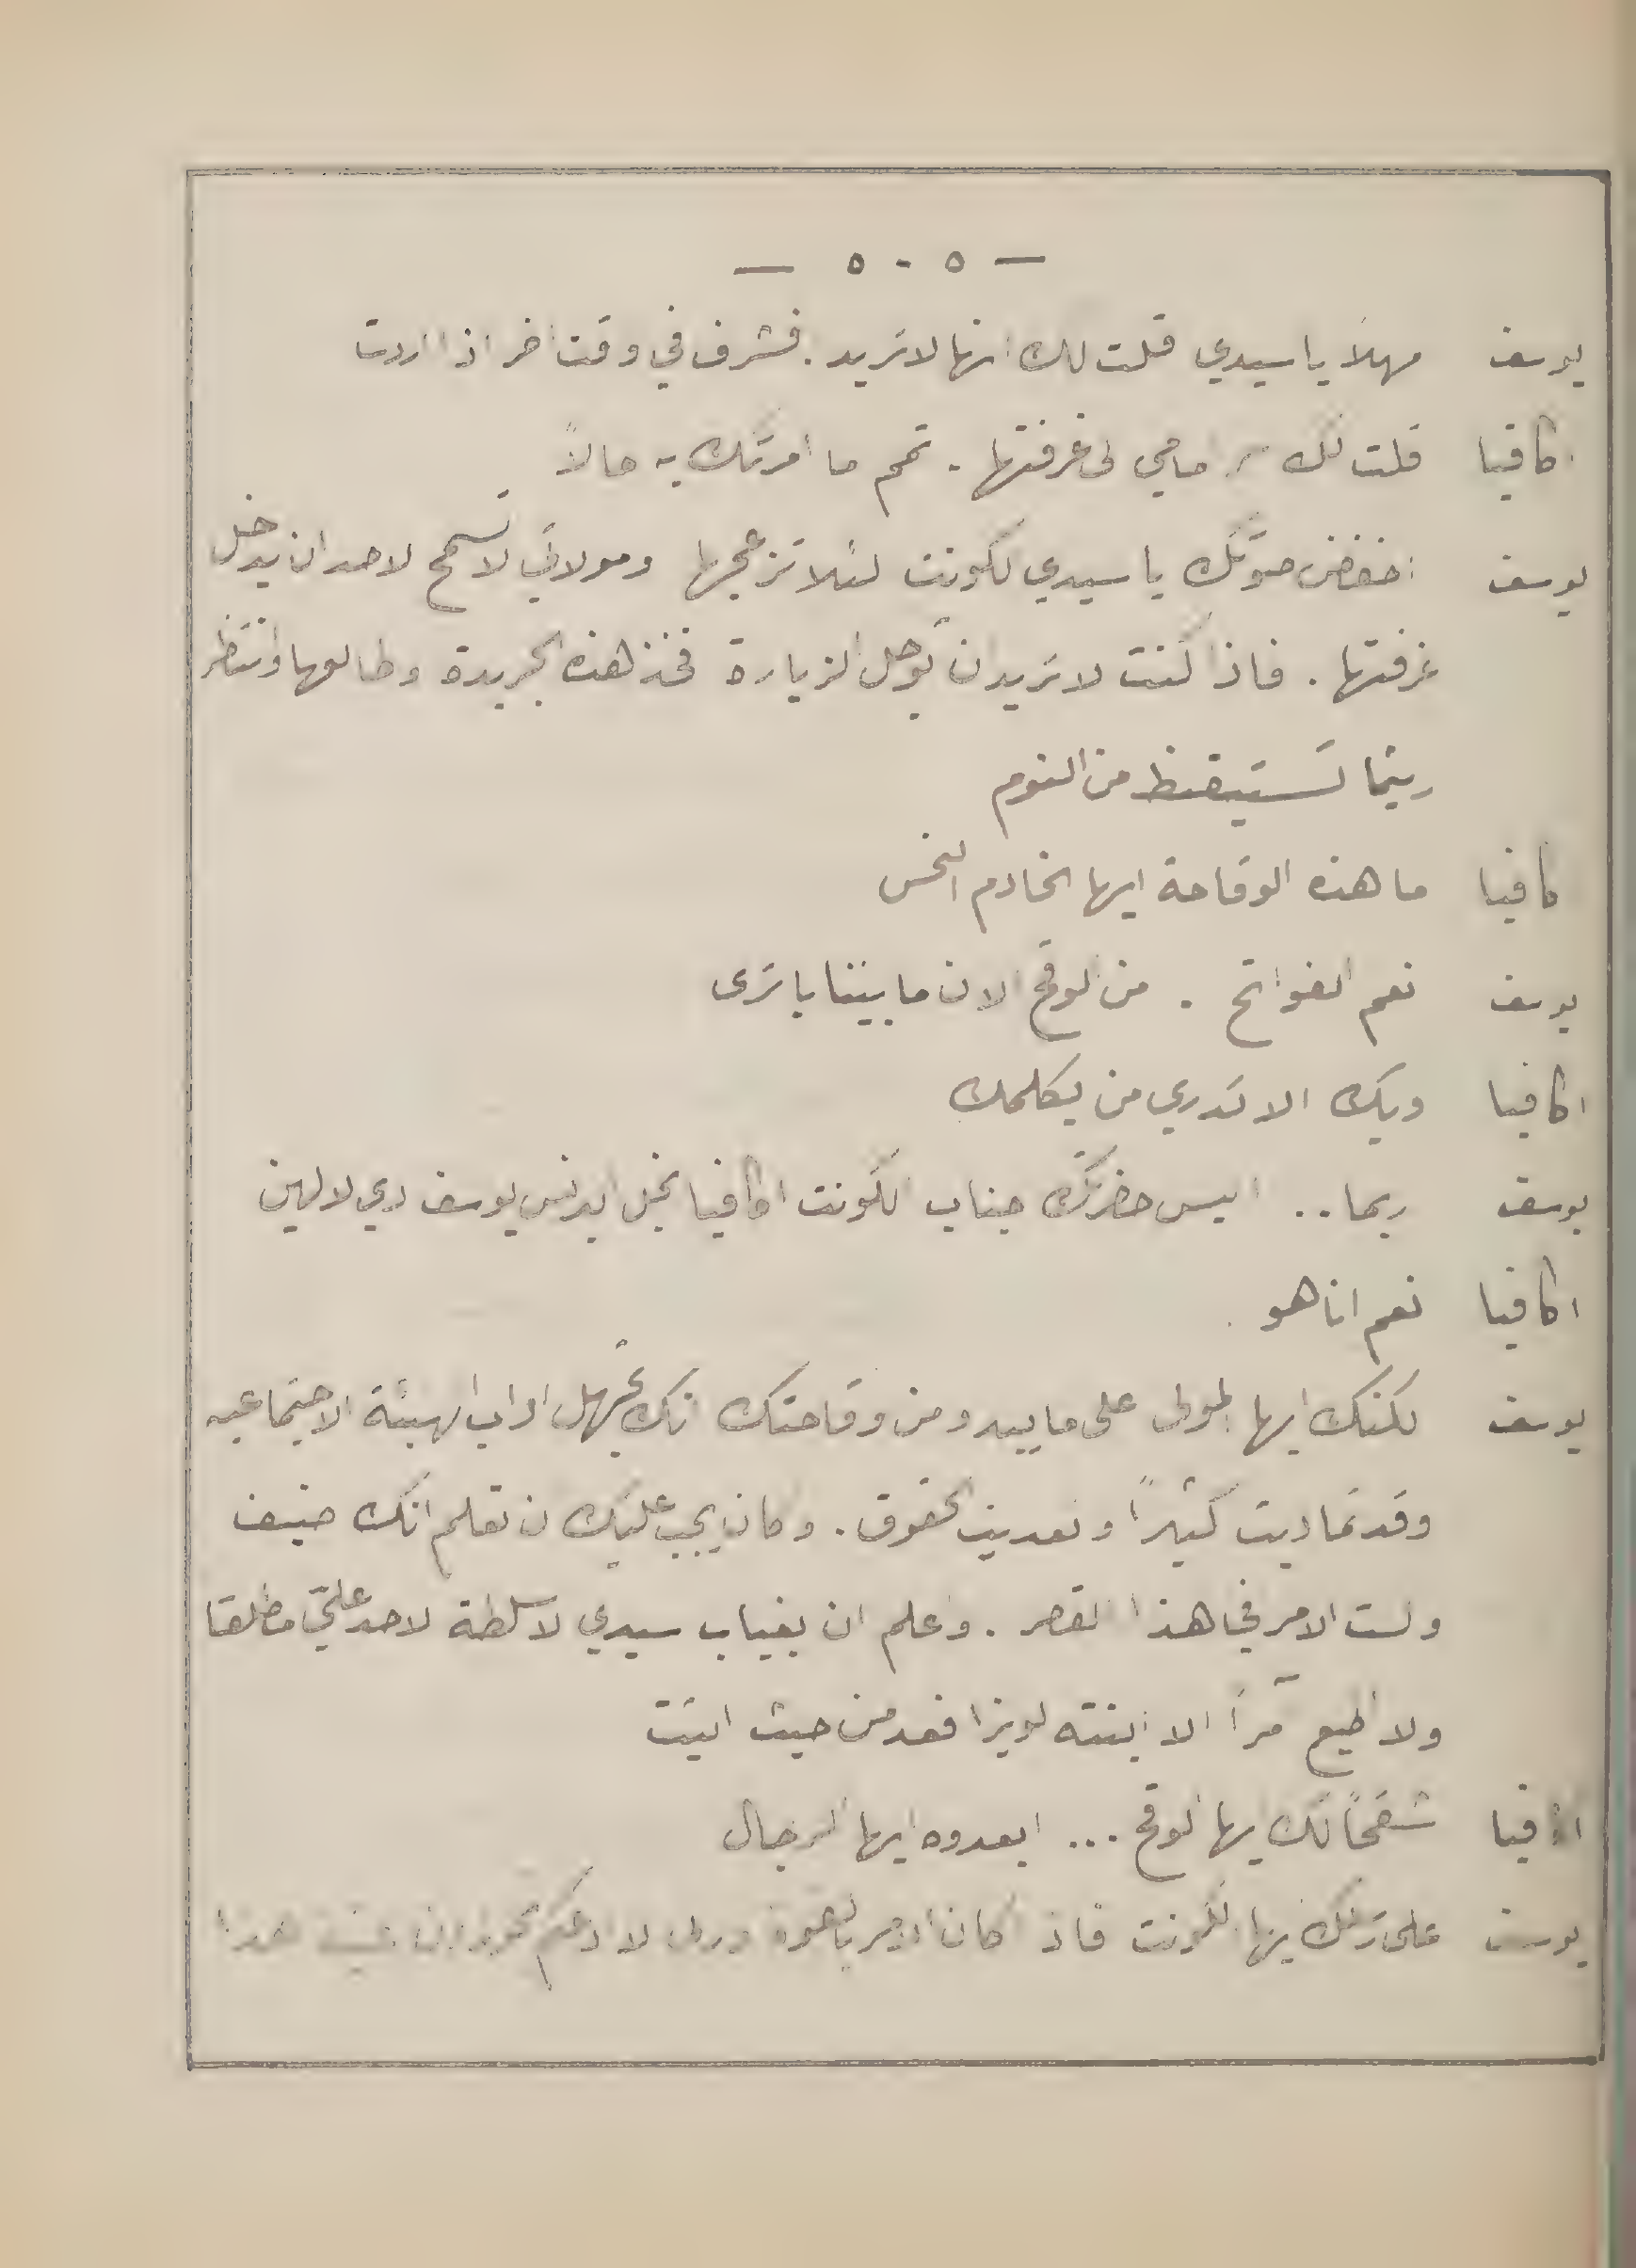 — ٥٠٥ —
يوسف مهلاً يا سيدي قلت لك انها لا تريد . فشرف في وقت اخر اذا اردت
اكافيا قلت لك سر امامي الى غرفتها . تمم ما امرتك به حالاً
يوسف اخفض صوتك يا سيدي الكونت لئلا تزعجها ومولاتي لا تسمح لاحد ان يدخل
غرفتها . فاذا كنت لا تريد ان تؤجل الزيارة فخذ هذه الجريدة وطالعها وانتظر
ريثما تستيقظ من النوم
اكافيا ما هذه الوقاحة ايها الخادم النحس
يوسف نعم الفواتح . من الوقح الان ما بيننا يا ترى
اكافيا ويك الا تدري من يكلمك
يوسف ربما .. اليس حضرتك جناب الكونت اكافيا نجل البرنس يوسف دي لالهين
اكافيا نعم انا هو .
يوسف لكنك ايها المولى على ما يبدو من وقاحتك انك تجهل اداب الهيئة الاجتماعيه
وقد تماديت كثيراً وتعديت الحقوق . وكان يجب عليك ان تعلم انك ضيف
ولست الامر في هذا القصر . واعلم ان بغياب سيدي لا سلطة لاحد عليّ مطلقا
ولا اطيع آمراً الا ابنته لويزا فعد من حيث اتيت
اكافيا شقحًا لك ايها الوقح ... ابعدوه ايها الرجال
يوسف على رسلك ايها الكونت فاذا كان الامر بالقوة